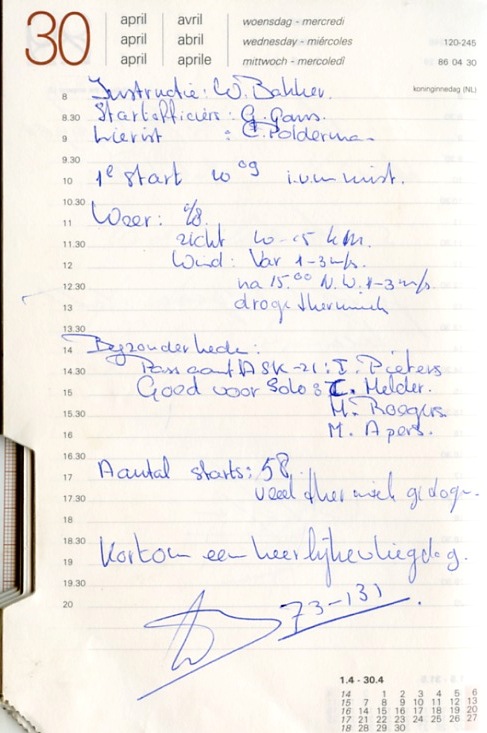 30
april avril woensdag - mercredi
april abril wednesday - miércoles 120-245
april aprile mittwoch - mercoledì 86 04 30
koninginnedag (NL)
8 Instructie: W. Bakker.
8.30 Startofficier: G. Gans.
9 Lierist : C. Polderman
9.30
10 1e start 10 09 i.v.m mist.
10.30
11 Weer: /8.
11.30 zicht 10-15 km.
12 Wind: Var 1-3 m/s.
12.30 na 15.00 N.W. 1-3 m/s.
13 droge thermiek
13.30
14 Byzonderheden:
14.30 Pass aant ASK-21: I. Pieters
15 Goed voor Solo: C. Melder.
15.30 M. Roegers
16 M. Apers.
16.30
17 Aantal starts: 58.
17.30 veel thermiek
18
18.30
19 Kortom een heerlijke vliegdag.
19.30
20 73-131
1.4 - 30.4
14 1 2 3 4 5 6
15 7 8 9 10 11 12 13
16 14 15 16 17 18 19 20
17 21 22 23 24 25 26 27
18 28 29 30